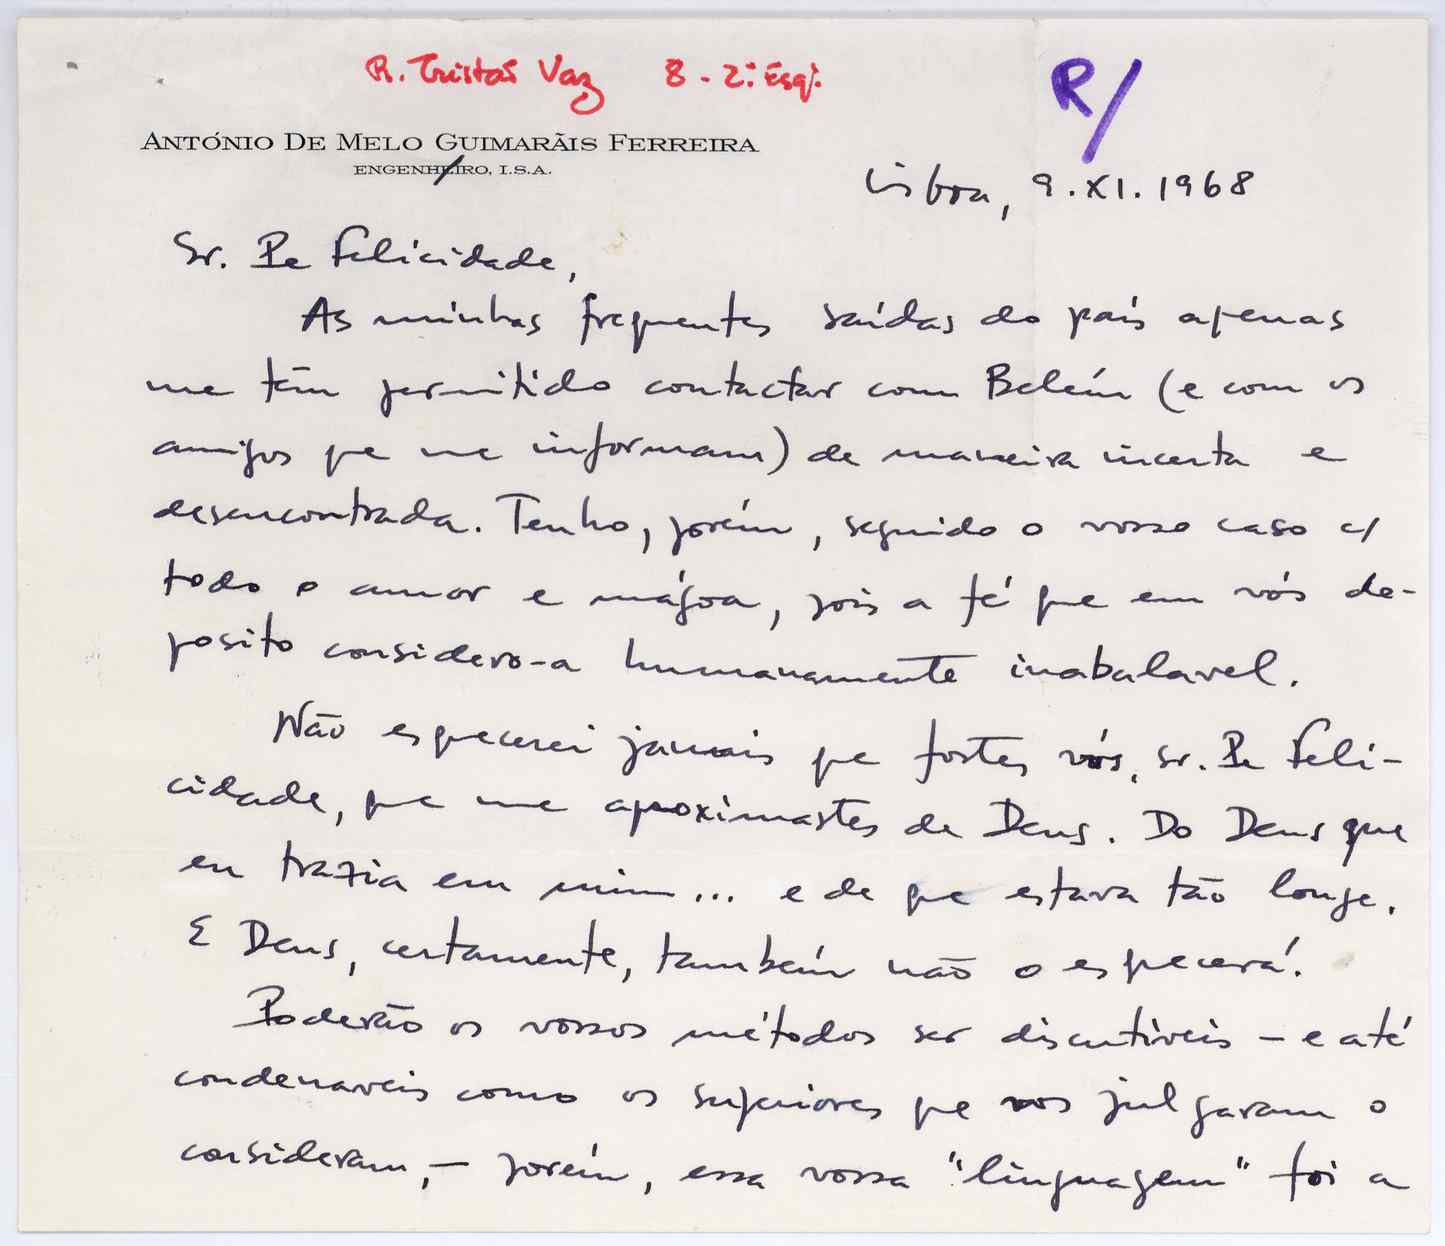 R. Tristão Vaz 8 - 2º Esq.
R/
ANTÓNIO DE MELO GUIMARÃIS FERREIRA
ENGENHEIRO, I.S.A.
Lisboa, 9.XI.1968
Sr. Pe Felicidade,
As minhas frequentes saídas do país apenas
me têm permitido contactar com Belém (e com os
amigos que me informam) de maneira incerta e
desencontrada. Tenho, porém, seguido o vosso caso c/
todo o amor e mágoa, pois a fé que em vós de-
posito considero-a humanamente inabalavel.
Não esquecerei jamais que fostes vós, sr. Pe Feli-
cidade, que me aproximastes de Deus. Do Deus que
eu trazia em mim... e de que estava tão longe.
E Deus, certamente, também não o esquecerá!
Poderão os vossos métodos ser discutíveis – e até
condenaveis como os superiores que vos julgaram o
consideram, – porém, essa vossa "linguagem" foi a